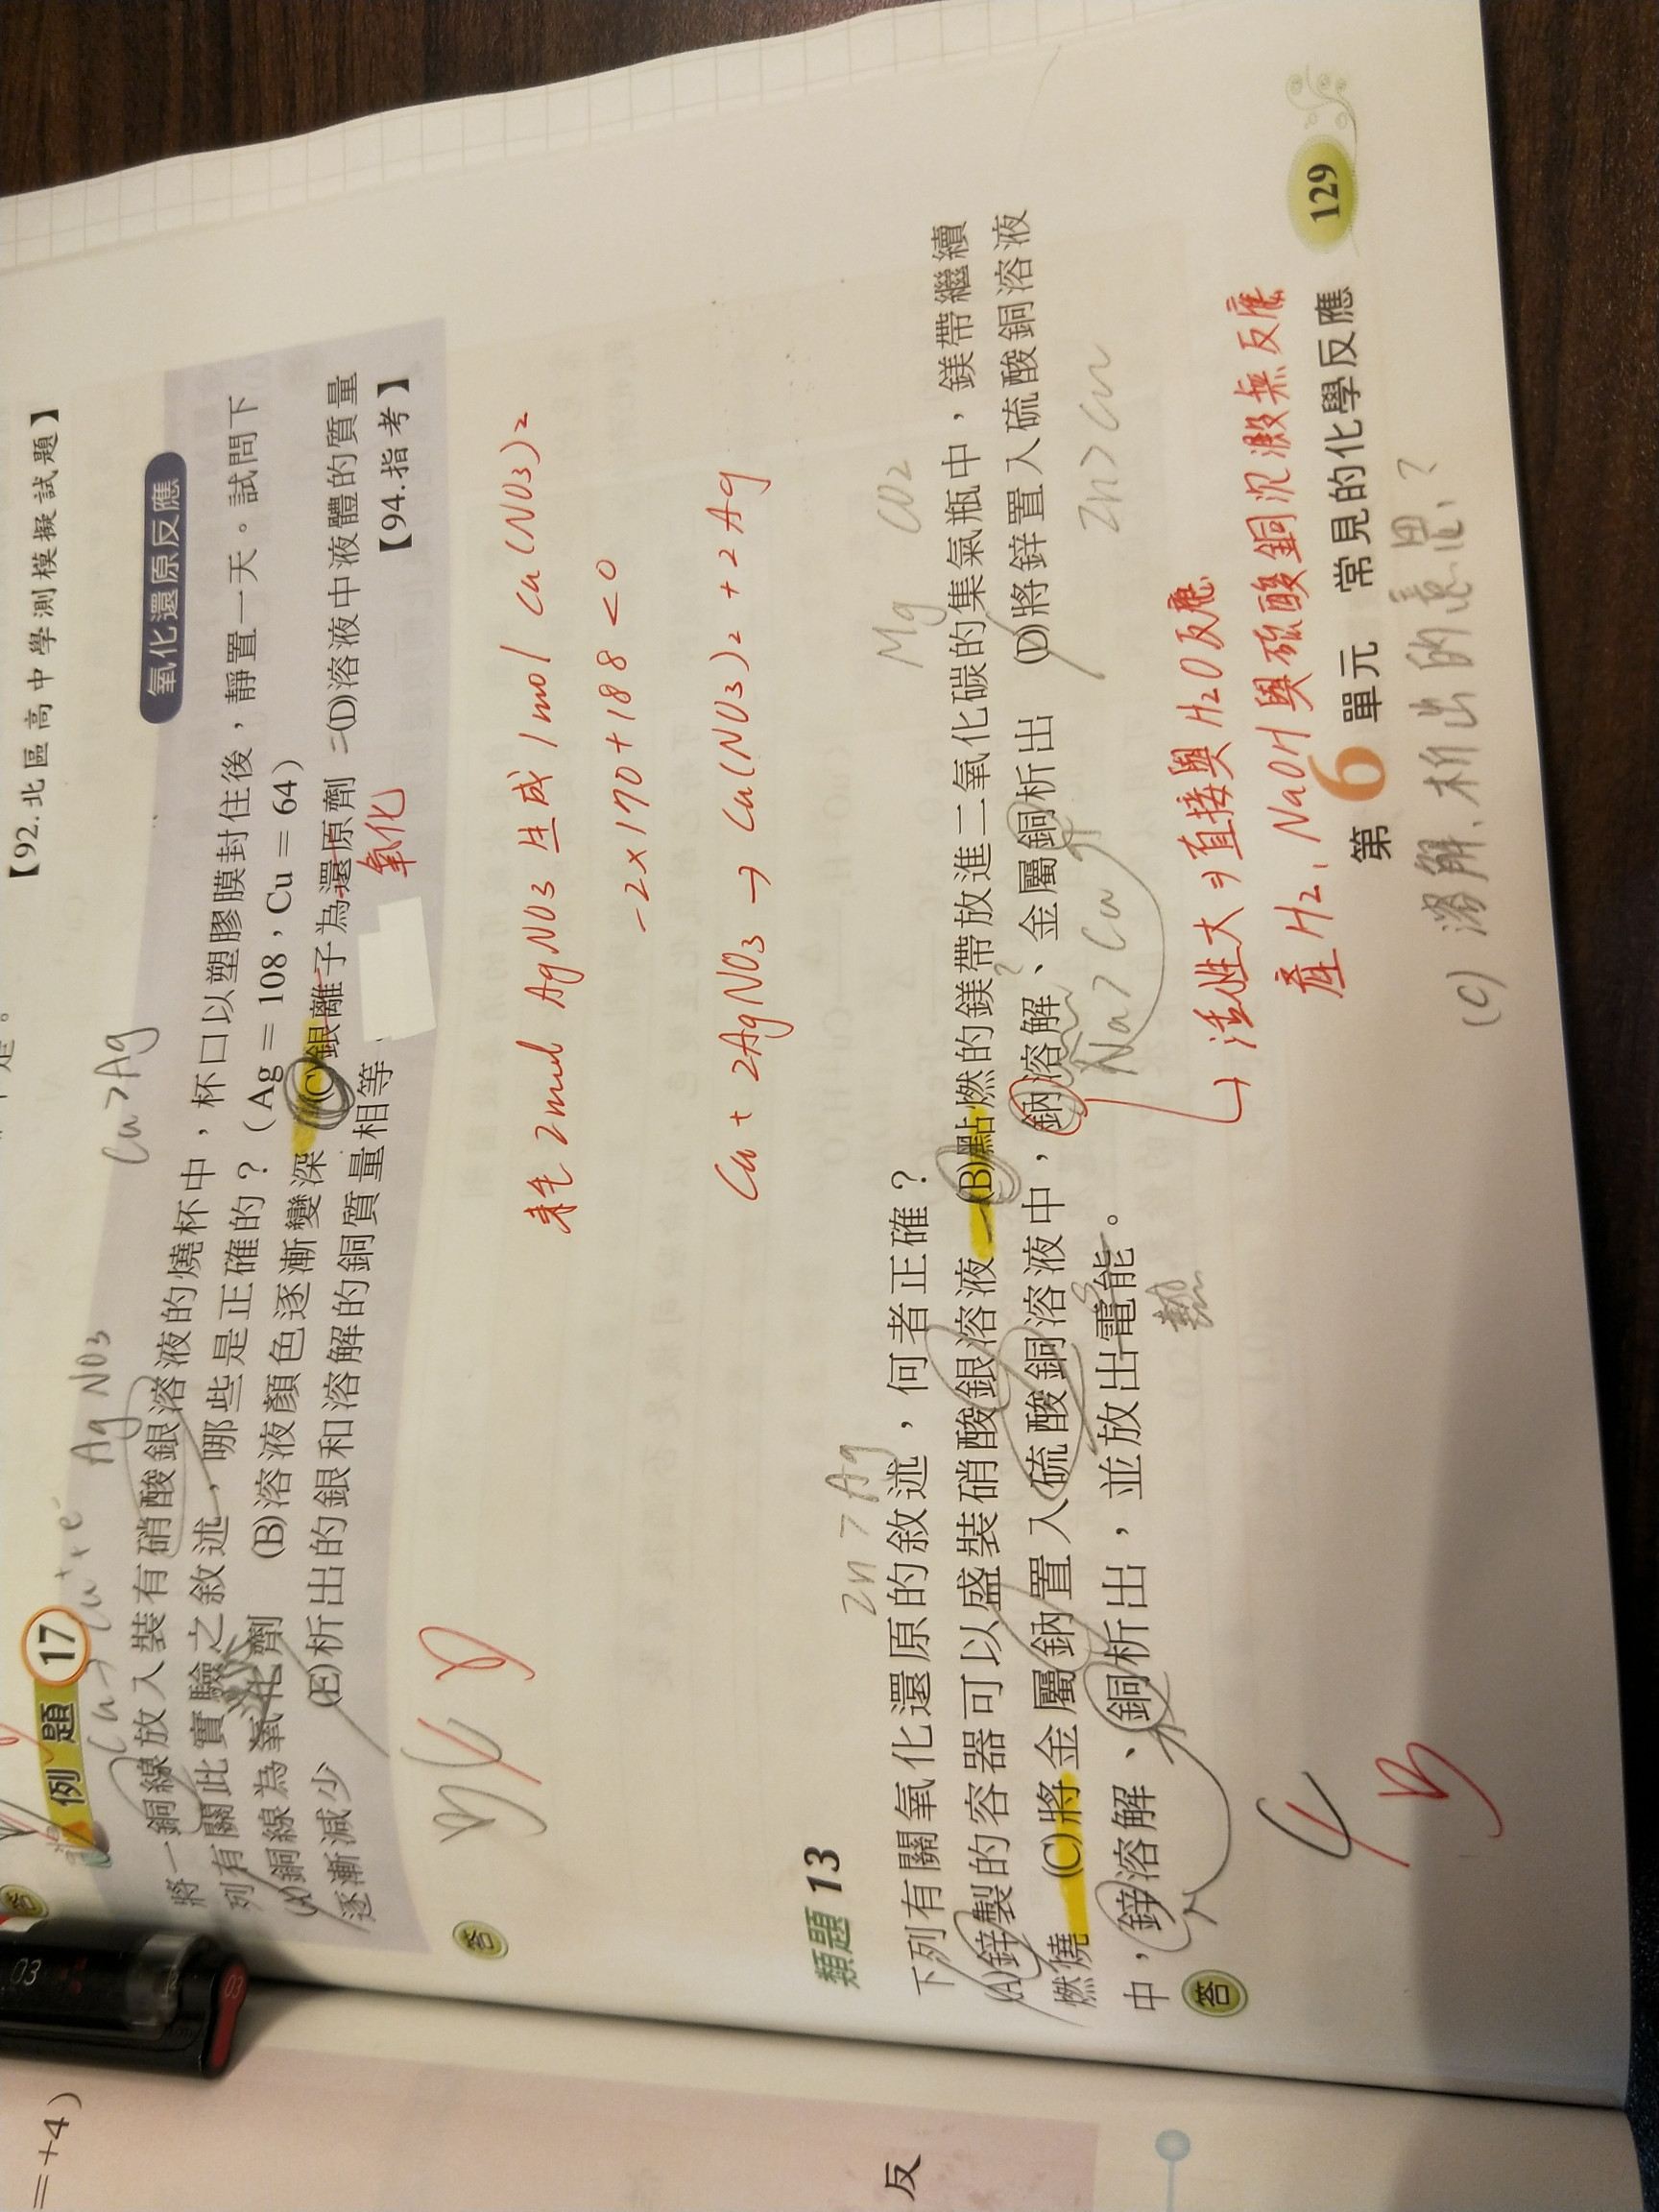 【92.北區高中學測模擬試題】
例題 17
氧化還原反應
Cu → Cu⁺ + e⁻
AgNO3
Cu > Ag
將一銅線放入裝有硝酸銀溶液的燒杯中，杯口以塑膠膜封住後，靜置一天。試問下
列有關此實驗之敘述，哪些是正確的？（Ag＝108，Cu＝64）
(A)銅線為氧化劑 (B)溶液顏色逐漸變深 (C)銀離子為還原劑 (D)溶液中液體的質量
氧化
逐漸減少 (E)析出的銀和溶解的銅質量相等
【94.指考】
答
耗2mol AgNO3 生成 1mol Cu(NO3)2
-2×170+188<0
Cu + 2AgNO3 → Cu(NO3)2 + 2Ag
類題 13
Zn > Ag
下列有關氧化還原的敘述，何者正確？
Mg CO2
(A)鋅製的容器可以盛裝硝酸銀溶液 (B)點燃的鎂帶放進二氧化碳的集氣瓶中，鎂帶繼續
燃燒 (C)將金屬鈉置入硫酸銅溶液中，鈉溶解、金屬銅析出 (D)將鋅置入硫酸銅溶液
?
Na > Cu
Zn > Cu
中，鋅溶解、銅析出，並放出電能。
熱
答
B
→活性大⇒直接與H2O反應
產H2、NaOH與硫酸銅沉澱無反應
第6單元 常見的化學反應
129
(C) 溶解、析出的意思？
＝+4)
反
03
03